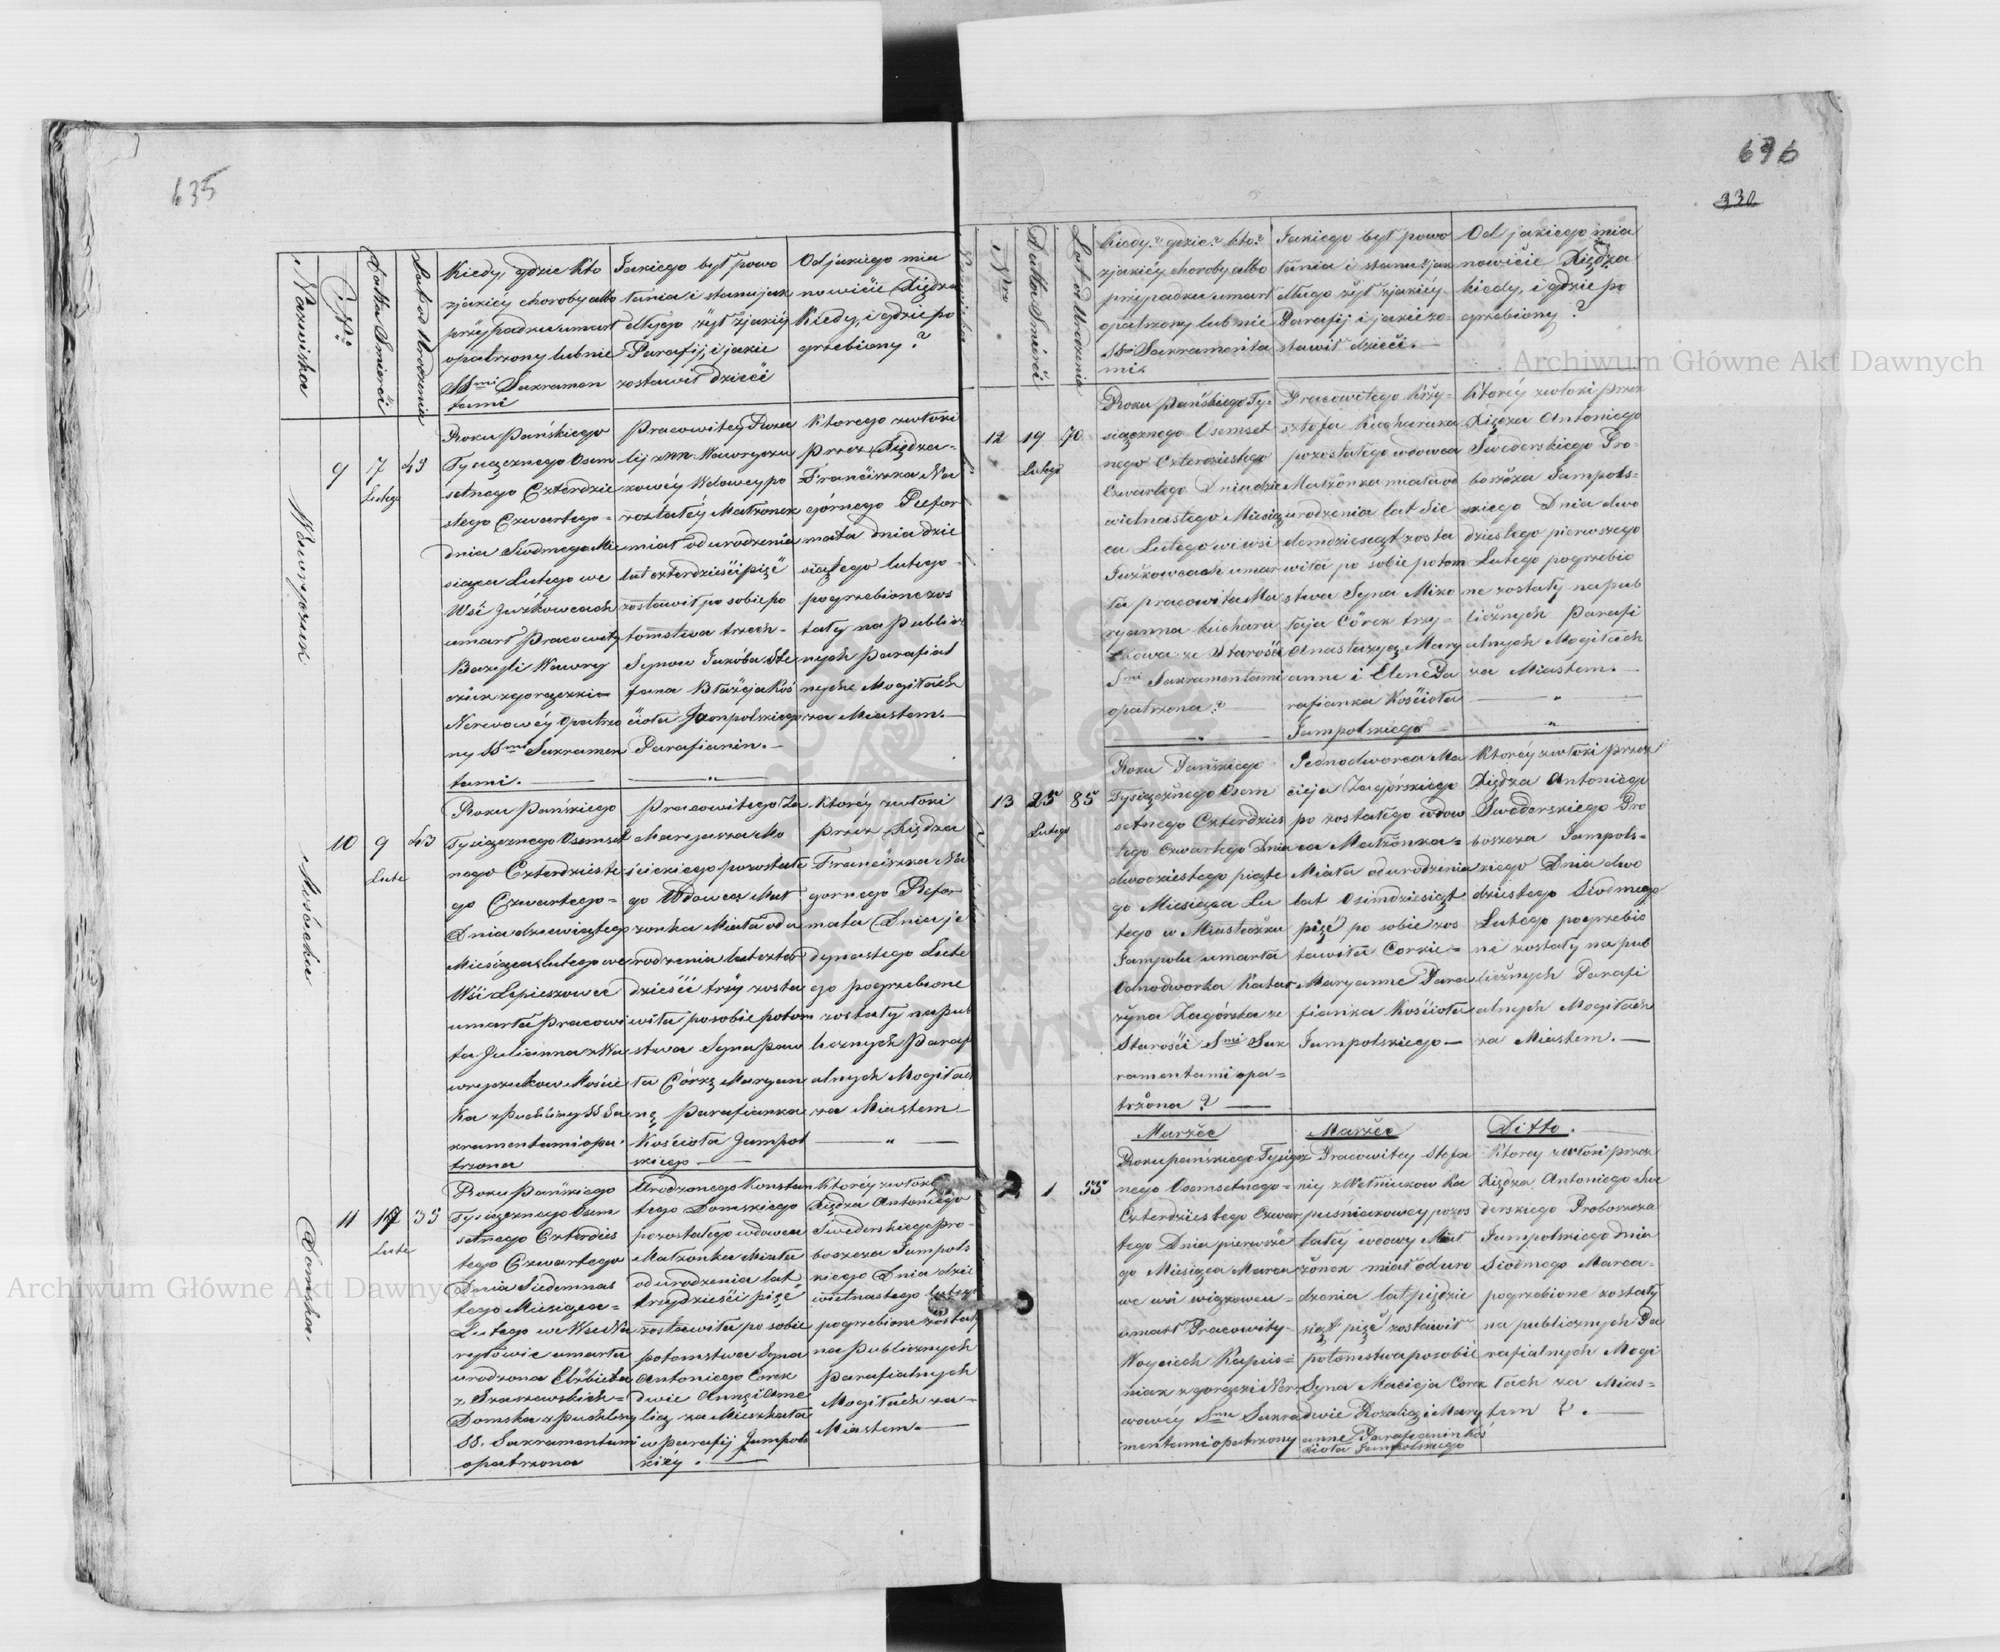 635
Nazwiska
Nro
Datta Smierci
Lat od Urodzenia
Kiedy, gdzie kto
zjakiéy choroby albo
przypadku umarł
opatrzony lub nie
SSmi Sakramen
tami
Jakiego był powo
łania i stanu jak
długo żył zjakiéy
Parafij, i jakie
zostawił dzieći
Od jakiego mia
nowićie Xiędza
Kiedy, i gdzie po
grzebiony ?
Wawryczuk
9
7
Lutego
45
Roku Pańskiego
Tysiącznego Osem
setnego Czterdzie
stego Czwartego =
dnia Siodmego Mie
siąca Lutego we
Wśi Juźkowcach
umarł Pracowity
Bazyli Wawry
czuk zgorączki
Nerwowéy Opatrzo
ny SSmi Sakramen
tami.
Pracowitey Roza
lij znn Wawryczu
kowéy Wdowey po
zostałéy Małżonek
miał od urodzenia
lat czterdzieśći pięć
zostawił po sobie po
tomstwa trzech =
Synow Jakóba Ste
fana Błażeja Koś
ćioła Jampolskiego
Parafianin. —
Ktorego zwłoki
przez Xiędza =
Franćiszka Na
górnego Refor
mata dnia dzie
siątego lutego
pogrzebione zos
tały na Publicz
nych Parafial
nych Mogiłach
za Miastem. —
Mośćicka
10
9
Lute
43
Roku Pańskiego
Tysiącznego Osemset
nego Czterdzieste
go Czwartego =
Dnia dziewiątego
Miesiąca Lutego we
Wśi Lepieszowce
umarła Pracowi
ta Julianna z Wa
wryczukow Mośćic
ka z Puchliny SS Sa
kramentami opa
trzona
Pracowitego Za
charyasza Mo
śćickiego pozostałe
go Wdowca Mał
żonka Miała od u
rodzenia lat czter
dzieśći trzy zosta
wiła po sobie potom
stwa Syna Paw
ła Córkę Maryan
nę Parafianka
Kośćioła Jampol
skiego —
Któréy zwłoki
przez Xiędza
Franćiszka Na
gornego Refor
mata Dnia je
dynastego Lute
go pogrzebione
zostały na pub
licznych Paraf
ialnych Mogiłach
za Miastem —
Domska.
11
17
Lute
35
Roku Pańskiego
Tysiącznego Osem
setnego Czterdzies
tego Czwartego
Dnia Siedemnas
tego Miesiąca =
Lutego we Wsi Na
ryłowie umarła
urodzona Elżbieta
z Staszewskich =
Domska z Puchliny
SS. Sakramentami
opatrzona
Urodzonego Konstan
tego Domskiego
pozostałego wdowca
Małżonka Miała
od urodzenia lat
trzydzieśći pięć
zostawiła po sobie
potomstwa Syna
Antoniego Corek
dwie Annę i Ame
lię za Mieszkała
w parafij Jampols
kiey. —
Ktoréy zwłoki
Xiędza Antoniego
Swederskiego Pro =
boszcza Jampols
kiego Dnia dzie
wietnastego lutego
pogrzebione zostały
na Publicznych
Parafialnych
Mogiłach za =
Miastem. —
696
330
Nro
Datta Smierći
Lat od Urodzenia
Kiedy? gdzie? kto?
zjakiéy choroby albo
przypadku umarł
opatrzony lub nie
SSmi Sakramenta
mi.
Jakiego był powo
łania i stanu jak
długo żył zjakiéy
Parafij i jakie zo =
stawił dzieći. —
Od jakiego mia
nowićie Xiędza
kiedy, i gdzie po
grzebiony ?
12
19
Lutego
70
Roku Pańskiego Ty =
siącznego Osemset
nego Czterdziestego
Czwartego Dnia dzie
wietnastego Miesią
ca Lutego we wsi
Juźkowcach umar
ła pracowita Ma
ryanna Kuchara
kowa ze Starośći
Smi Sakramentami
opatrzona ? —
Pracowitego Krzy =
sztofa Kucharuka
pozostałego wdowca
Małżonka miała od
urodzenia lat sie
demdziesiąt zosta
wiła po sobie potom
stwa Syna Miko
łaja Córek trzy =
Anastazyę Mary
annę i Elenę Pa
rafianka Kośćioła
Jampolskiego —
Któréy zwłoki przez
Xiędza Antoniego
Swederskiego Pro =
boszcza Jampols =
kiego Dnia dwo
dziestego pierwszego
Lutego pogrzebio
ne zostały na pub
licznych Parafi
alnych Mogiłach
za Miastem. —
13
25
Lutego
85
Roku Pańskiego
Tysiącznego Osem
setnego Czterdzies
tego Czwartego Dnia
dwodziestego piąte
go Miesiąca Lu
tego w Miasteczku
Jampolu umarła
Odnodworka Katar
zyna Zagórska ze
Starośći Smi Sak
ramentami opa =
trzona ? —
Jednodworca Ma
cieja Zagórskiego
po zostałego wdow
ca Małżonka =
Miała od urodzenia
lat Osimdziesiąt
pięć po sobie zos
tawiła Corkie =
Maryannę Para
fianka Kośćioła
Jampolskiego —
Ktoréy zwłoki przez
Xiędza Antoniego
Swederskiego Pro
boszcza Jampols =
kiego Dnia dwo
dziestego Siodmego
Lutego pogrzebio
ne zostały na pub
licznych Parafi
alnych Mogiłach
za Miastem. —
Marzec
Marzec
Ditto.
1
55
Roku pańskiego Tysiącz
nego Osemsetnego =
Czterdziestego Czwar
tego Dnia pierwsze
go Miesiąca Marca
we wsi Wiązowcu =
umarł Pracowity =
Woyciech Kapus =
niak z gorączki Ner
wowéy Smi Sakra
mentami opatrzony
Pracowitey Stefa
nij z Wołniukow Ka
puśniakowey pozos
tałéy wdowy Mał
żonek miał od uro
dzenia lat pięćdzie
siąt pięć zostawił
potomstwa po sobie
Syna Macieja Corek
dwie Rozalią i Mary
annę Parafianin Koś
ćioła Jampolskiego
Ktorey zwłoki przez
Xiędza Antoniego Swe
derskiego Proboszcza
Jampolskiego dnia
Siódmego Marca =
pogrzebione zostały
na publicznych Pa
rafialnych Mogi
łach za Mias =
tem ? . —
Archiwum Główne Akt Dawnych
Archiwum Główne Akt Dawnych